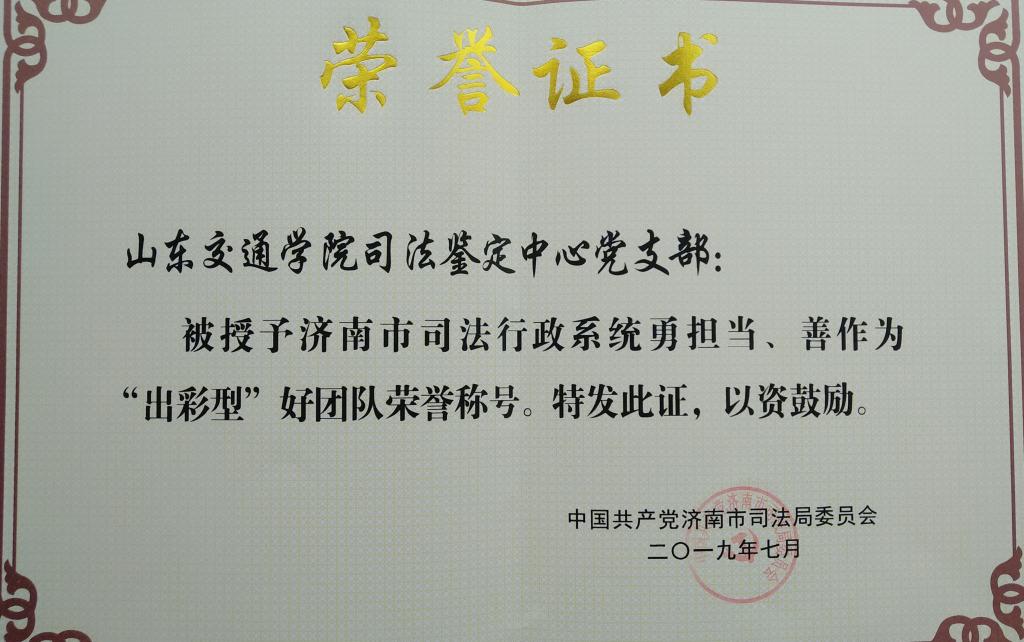 荣誉证书
山东交通学院司法鉴定中心党支部：
被授予济南市司法行政系统勇担当、善作为
“出彩型”好团队荣誉称号。特发此证，以资鼓励。
中国共产党济南市司法局委员会
二〇一九年七月